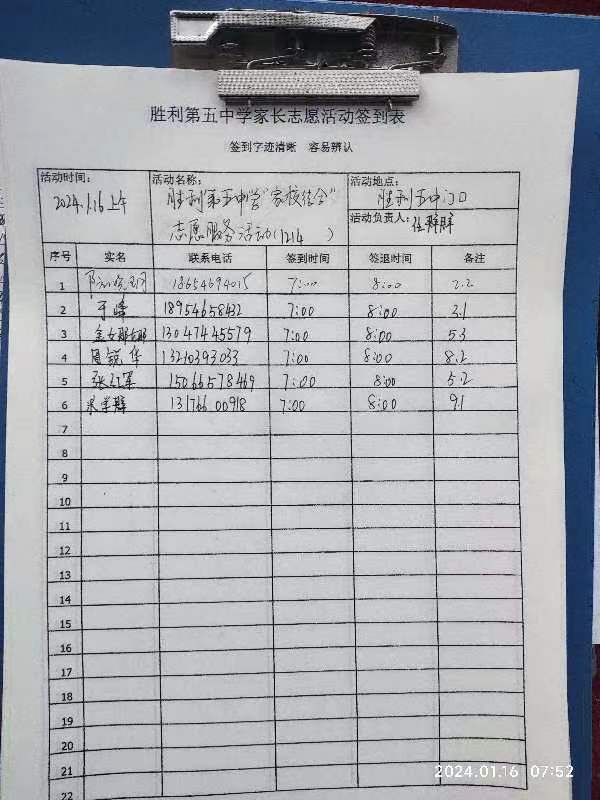 胜利第五中学家长志愿活动签到表
签到字迹清晰 容易辨认
活动时间: 2024.1.16上午
活动名称: 胜利第五中学"家校结合"
志愿服务活动(1214 )
活动地点: 胜利五中门口
活动负责人: 任
序号 实名 联系电话 签到时间 签退时间 备注
1 18654694015 7:00 8:00 2.2
2 于峰 18954658432 7:00 8:00 3.1
3 13047445579 7:00 8:00 5.3
4 周 华 13210393033 7:00 8:00 8.2
5 张红军 15066578469 7:00 8:00 5.2
6 13176600918 7:00 8:00 9.1
7
8
9
10
11
12
13
14
15
16
17
18
19
20
21
22
2024.01.16 07:52